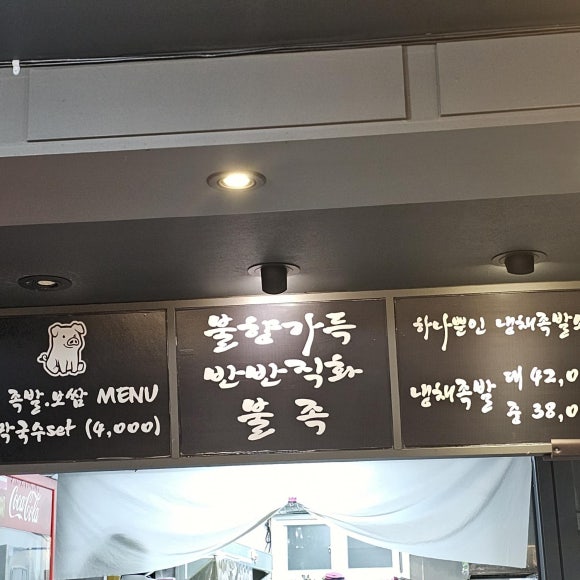 족발.보쌈 MENU
막국수set (4,000)
불향가득
반반직화
불족
하나뿐인 냉채족발
냉채족발 대 42,0
중 38,0
Coca-Cola